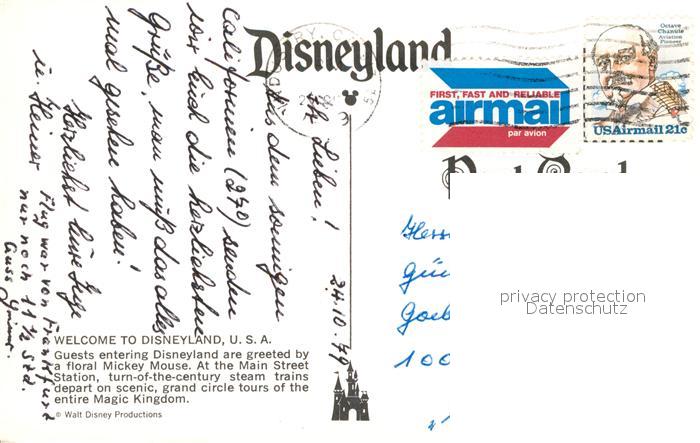 Disneyland
FIRST, FAST AND RELIABLE
airmail
par avion
Octave
Chanute
Aviation
Pioneer
USAirmail 21c
24.10.79
Ihr Lieben!
Aus dem sonnigen
Californien (27°) senden
wir Euch die herzlichsten
Grüße, man muß das alles
mal gesehen haben!
Herzlichst Eure Inge
u. Heiner
Flug war von Frankfurt
nur noch 11 1/2 Std.
Gruss
WELCOME TO DISNEYLAND, U. S. A.
Guests entering Disneyland are greeted by
a floral Mickey Mouse. At the Main Street
Station, turn-of-the-century steam trains
depart on scenic, grand circle tours of the
entire Magic Kingdom.
© Walt Disney Productions
Gü
Goeb
100
privacy protection
Datenschutz